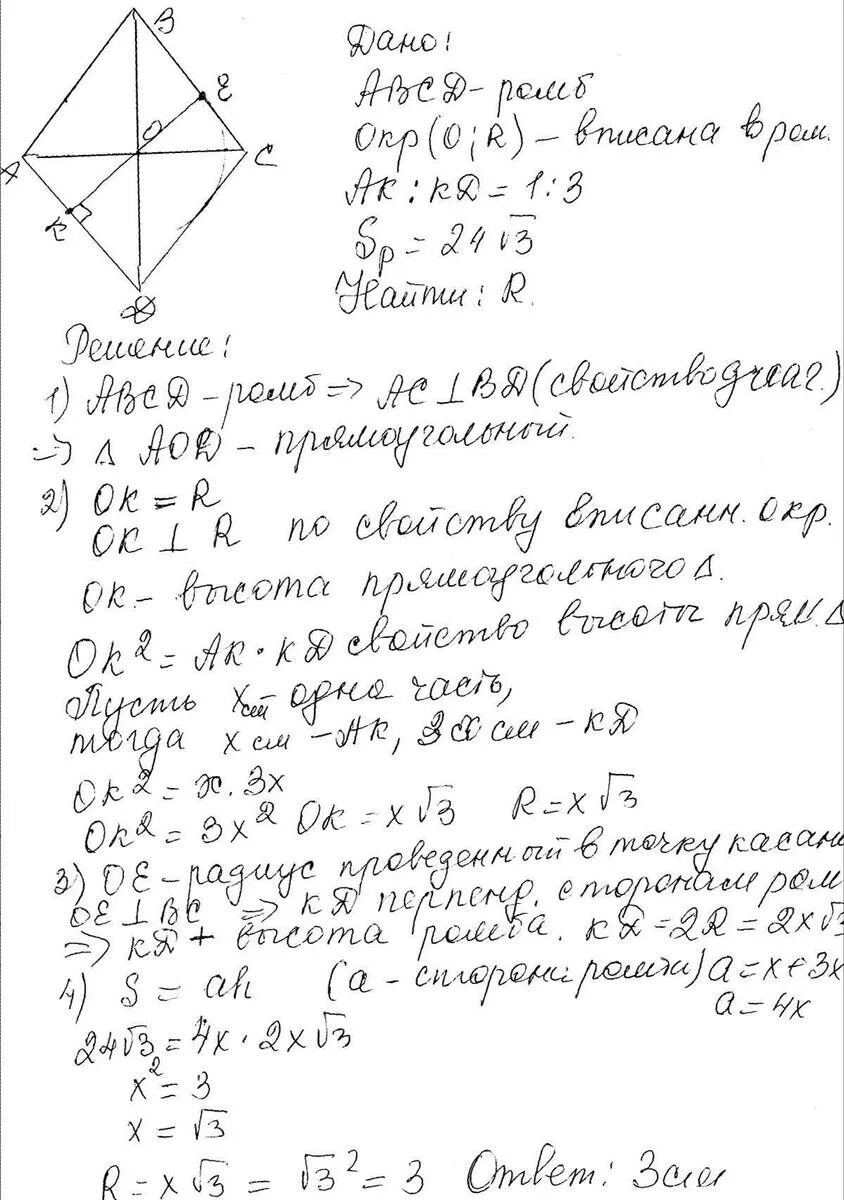 B
E
O
A
C
K
D
Дано:
ABCD - ромб
Окр(O; R) - вписана в ром.
AK : KD = 1:3
Sр = 24√3
Найти: R.
Решение:
1) ABCD - ромб => AC ⊥ BD (свойство диаг.)
=> Δ AOD - прямоугольный.
2) OK = R
OK ⊥ R по свойству вписанн. окр.
OK - высота прямоугольного Δ.
OK² = AK · KD свойство высоты прям. Δ
Пусть x см одна часть,
тогда x см - AK, 3x см - KD
OK² = x · 3x
OK² = 3x² OK = x√3 R = x√3
3) OE - радиус проведенный в точку касани
OE ⊥ BC => KD перпенд. сторонам ром
=> KD + высота ромба. KD = 2R = 2x√3
4) S = ah (a - сторона ромба) a = x + 3x
a = 4x
24√3 = 4x · 2x√3
x² = 3
x = √3
R = x√3 = √3² = 3 Ответ: 3 см